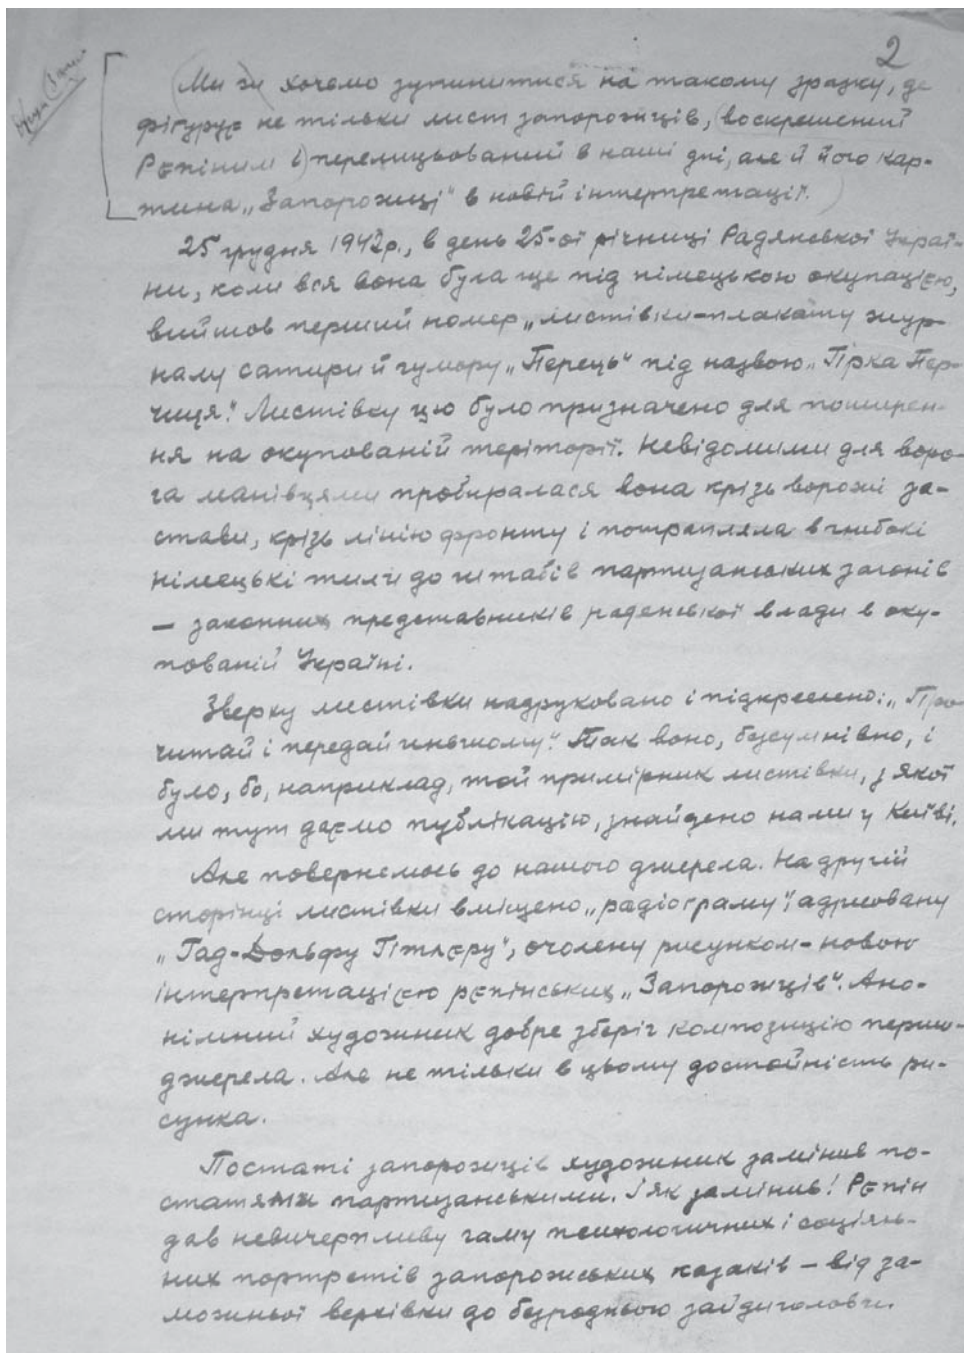 2
(Ми ж хочемо зупинитися на такому зразку, де
фігурує не тільки лист запорожців, (воскрешений
Рєпіним і) перелицьований в наші дні, але й його кар-
тина „Запорожці" в новій інтерпретації.)
25 грудня 1942р., в день 25-ої річниці Радянської Украї-
ни, коли вся вона була ще під німецькою окупацією,
вийшов перший номер „листівки-плакату жур-
налу сатири й гумору „Перець" під назвою „Гірка Пер-
чиця". Листівку цю було призначено для поширен-
ня на окупованій теріторії. Невідомими для воро-
га манівцями пробиралася вона крізь ворожі за-
стави, крізь лінію фронту і потрапляла в глибокі
німецькі тили до штабів партизанських загонів
— законних представників раденської влади в оку-
пованій Україні.
Зверху листівки надруковано і підкреслено: „Про-
читай і передай иньшому". Так воно, безсумнівно, і
було, бо, наприклад, той примірник листівки, з якої
ми тут даємо публікацію, знайдено нами у Київі.
Але повернемось до нашого джерела. На другій
сторінці листівки вміщено „радіограму", адрисовану
„Гад-Дольфу Гітлєру", очолену рисунком-новою
інтерпретацією рєпінських „Запорожців". Ано-
німний художник добре зберіг композицію першо-
джерела. Але не тільки в цьому достойність ри-
сунка.
Постаті запорожців художник замінив по-
статями партизанськими. І як замінив! Рєпін
дав невичерпливу гаму психологичних і соціяль-
них портретів запорожських козаків — від за-
можньої верхівки до безродного зайдиголови.